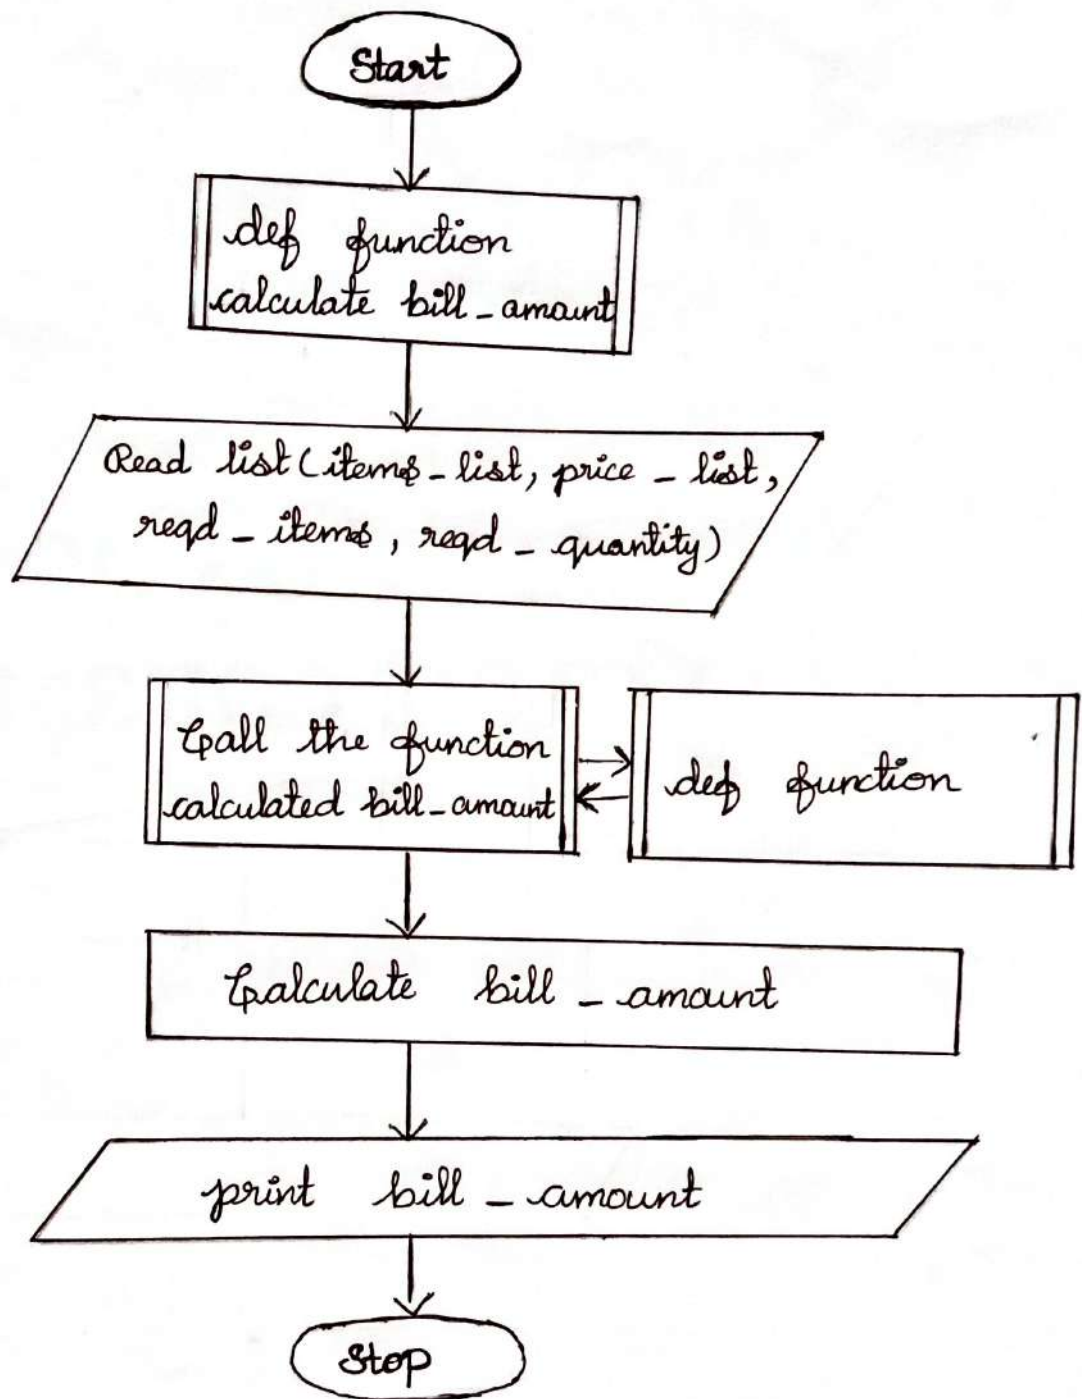 Start
def function
calculate bill_amount
Read list(items_list, price_list,
reqd_items, reqd_quantity)
Call the function
calculated bill_amount
def function
Calculate bill_amount
print bill_amount
Stop